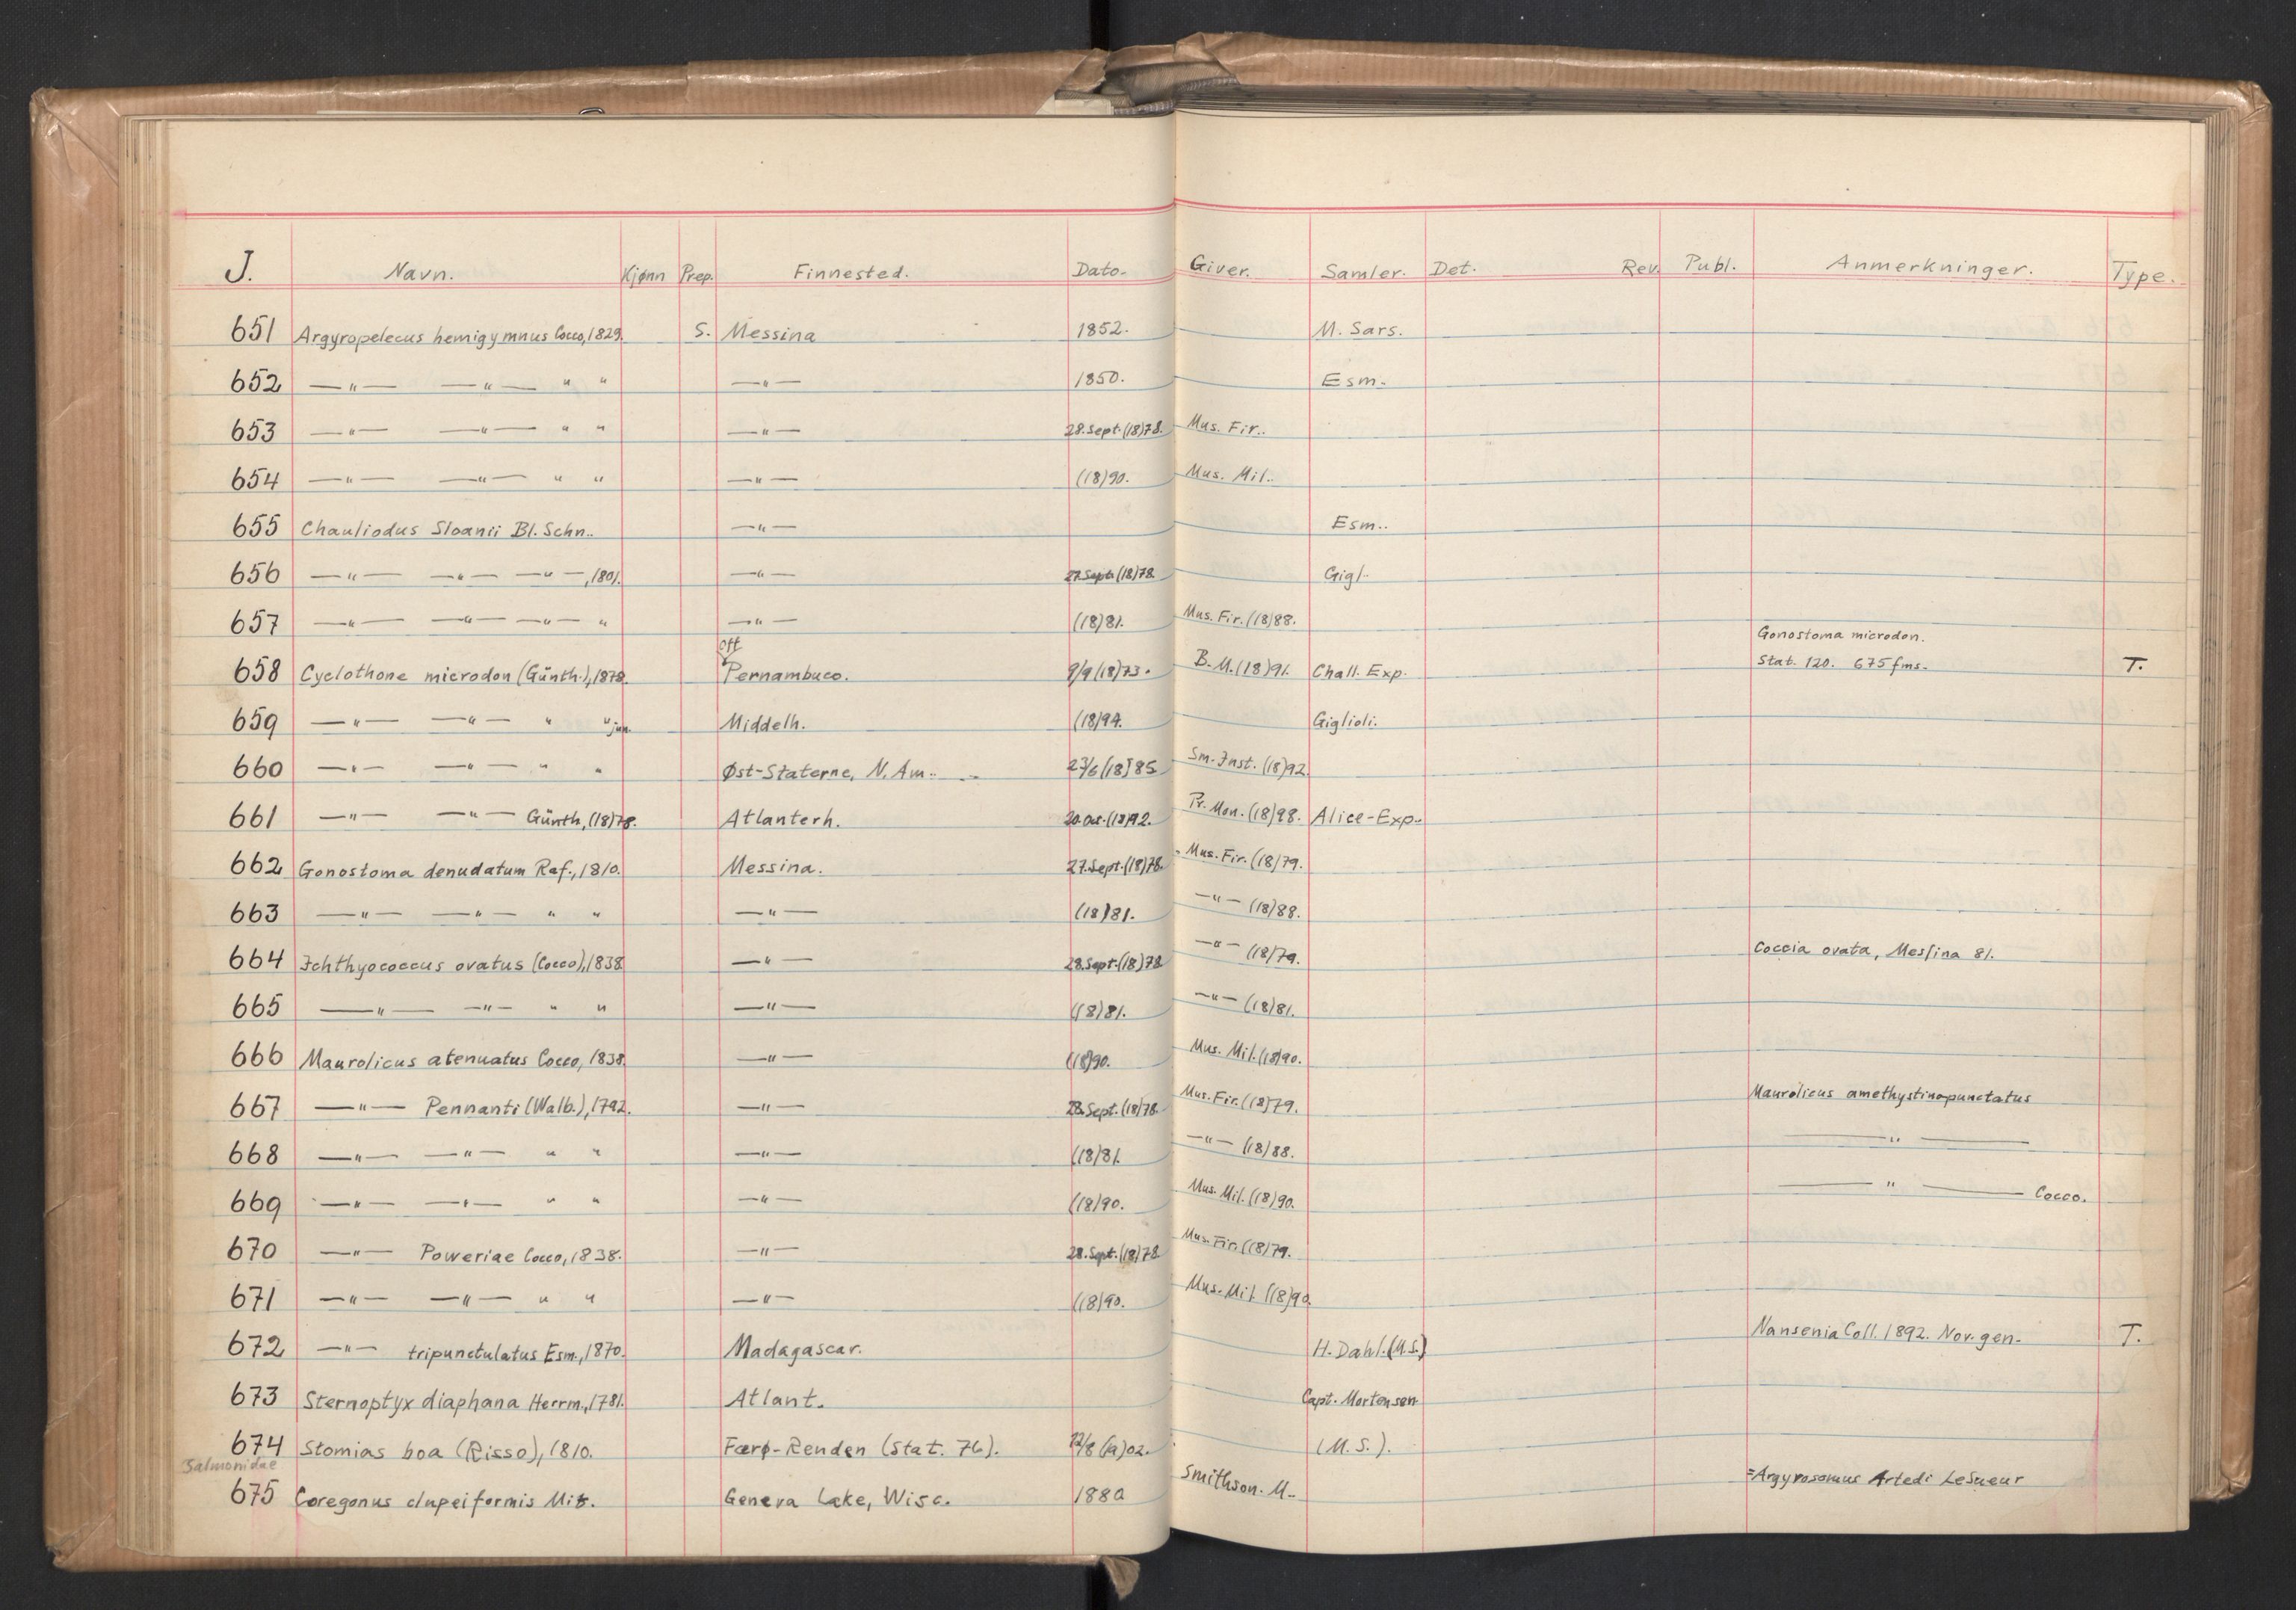 J. Navn. Kjønn Prep. Finnested. Dato. Giver. Samler. Det. Rev. Publ. Anmerkninger. Type.
651 Argyropelecus hemigymnus Cocco, 1829. S. Messina 1852. M. Sars.
652 —"— —"— " " —"— 1850. Esm.
653 —"— —"— " " —"— 28. Sept. (18)78. Mus. Fir..
654 —"— —"— " " —"— (18)90. Mus. Mil..
655 Chauliodus Sloanii Bl. Schn.. —"— Esm..
656 —"— —"— —"—, 1801. —"— 27. Sept. (18)78 Gigl.
657 —"— —"— —"— " —"— (18)81. Mus. Fir. (18)88.
off Gonostoma microdon.
658 Cyclothone microdon (Günth.), 1878. Pernambuco. 9/9 (18)73. B. M. (18)91. Chall. Exp. Stat. 120. 675 fms. T.
659 —"— —"— " " jun. Middelh. (18)94. Giglioli.
660 —"— —"— " " Øst-Staterne, N. Am.. 23/6 (18)85 Sm. Inst. (18)92.
661 —"— —"— Günth, (18)78. Atlanterh. (18)92. Pr. Mon. (18)98. Alice-Exp.
662 Gonostoma denudatum Raf., 1810. Messina. 27. Sept. (18)78. Mus. Fir. (18)79.
663 —"— —"— " " —"— (18)81. —"— (18)88.
664 Ichthyococcus ovatus (Cocco), 1838. —"— 28. Sept. (18)78 —"— (18)79. Coccia ovata, Messina 81.
665 —"— —"— " " —"— (18)81. —"— (18)81.
666 Maurolicus atenuatus Cocco, 1838. —"— (18)90. Mus. Mil. (18)90.
667 —"— Pennanti (Walb.), 1792. —"— 28. Sept. (18)78 Mus. Fir. (18)79. Maurolicus amethystinopunctatus
668 —"— —"— " " —"— (18)81. —"— (18)88. —"—
669 —"— —"— " " —"— (18)90. Mus. Mil. (18)90. —"— Cocco.
670 —"— Poweriae Cocco, 1838. —"— 28. Sept. (18)78 Mus. Fir. (18)79.
671 —"— —"— " " —"— (18)90. Mus. Mil. (18)90.
672 —"— tripunctulatus Esm., 1870. Madagascar. H. Dahl. (M.S.) Nansenia Coll. 1892. Nov. gen. T.
673 Sternoptyx diaphana Herrm., 1781. Atlant. Capt. Mortensen
674 Stomias boa (Risso), 1810. Færø-Renden (Stat. 76). (M. S.).
Salmonidae
675 Coregonus clupeiformis Mit. Geneva Lake, Wisc. 1880 Smithson. M. =Argyrosomus Artedi LeSueur